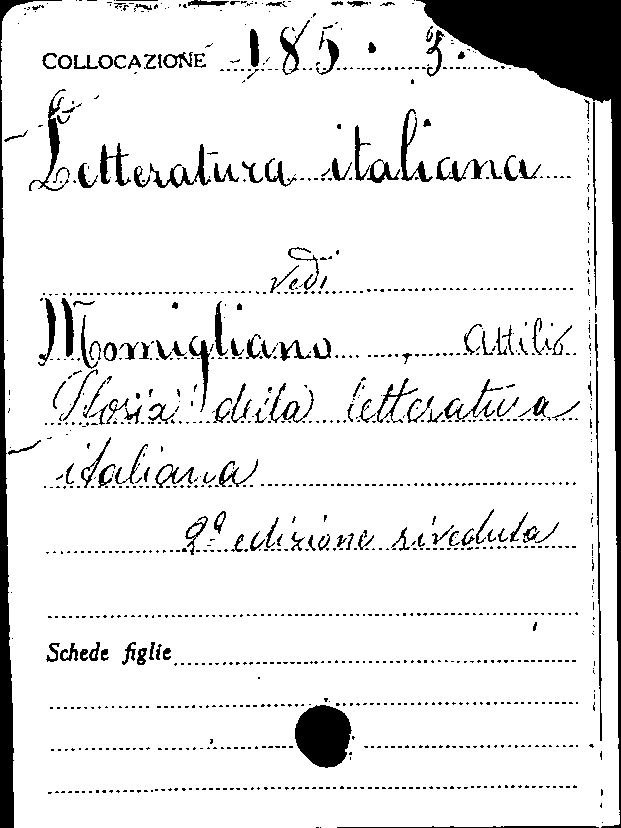 COLLOCAZIONE 185. 3.
Letteratura italiana
vedi
Momigliano, Attilio
Storia della letteratura
italiana
2ª edizione riveduta
Schede figlie